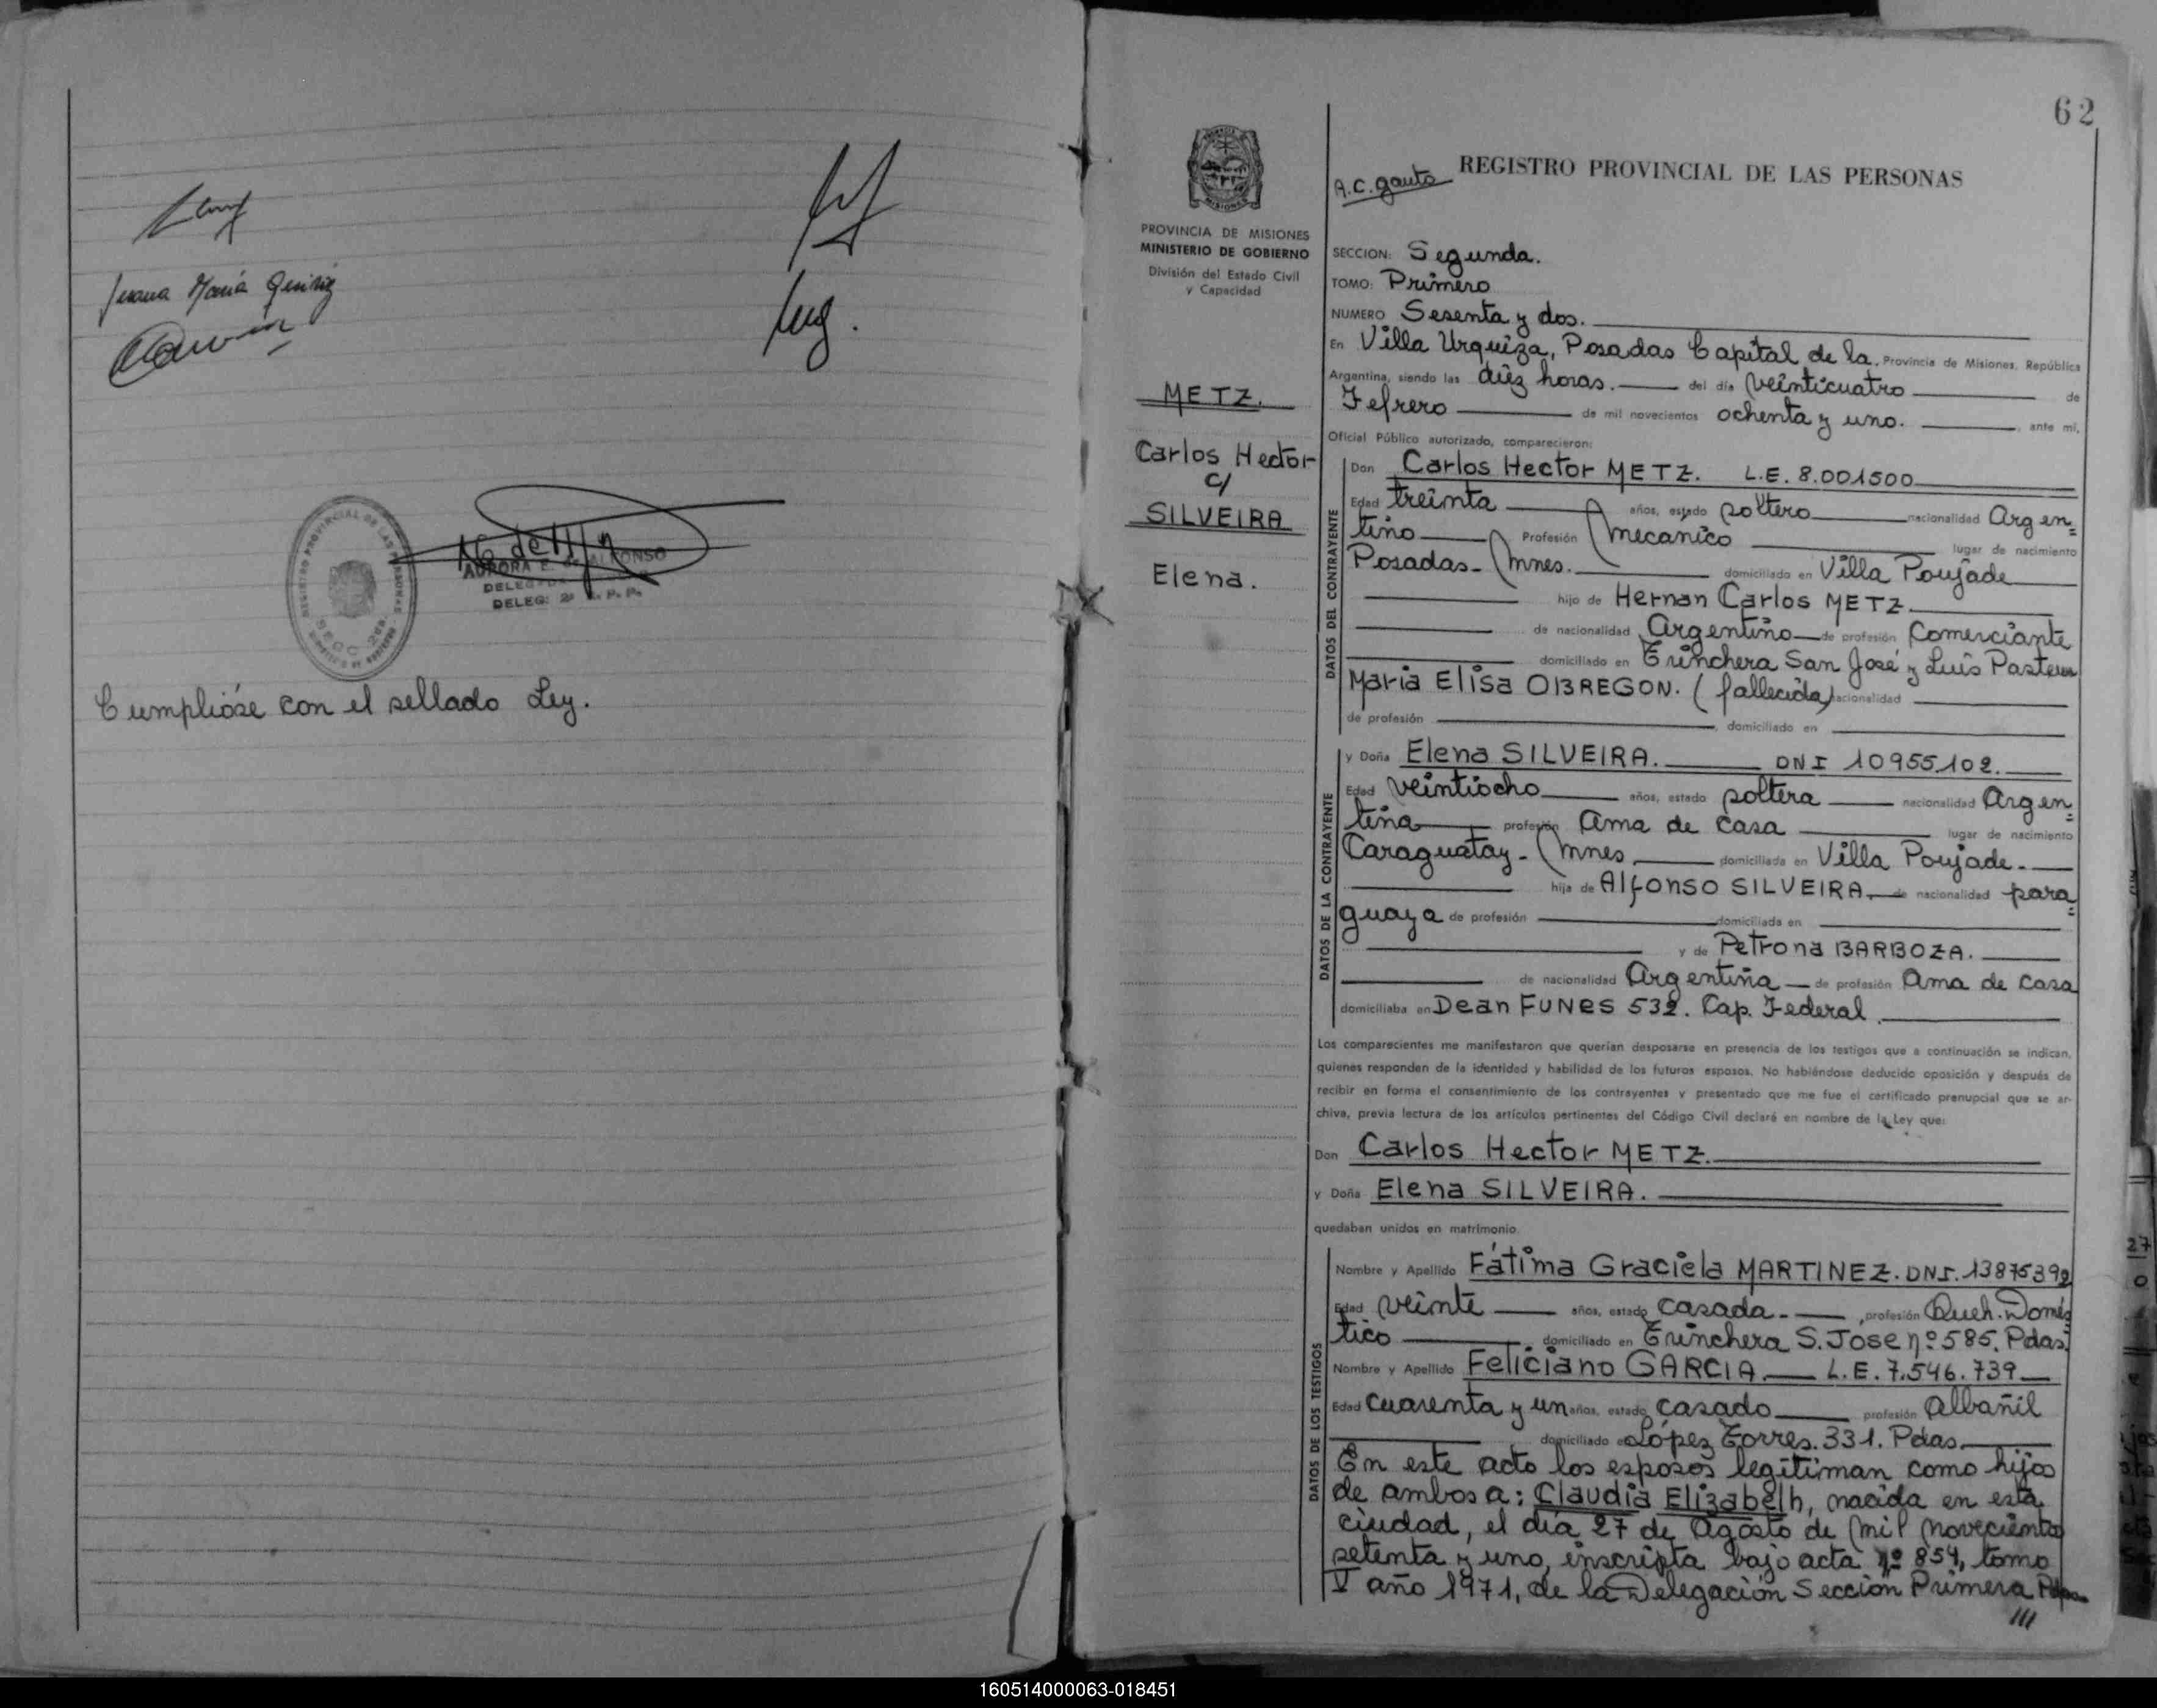 Juana María
REGISTRO PROVINCIAL DE LAS PERSONAS
SECC. 2da.
AURORA E. de ALFONSO
DELEG: 2ª R. P. P.
Cumplióse con el sellado Ley.
62
PROVINCIA DE MISIONES
MINISTERIO DE GOBIERNO
División del Estado Civil
y Capacidad
METZ.
Carlos Hector
c/
SILVEIRA
Elena.
A.C. gauto
REGISTRO PROVINCIAL DE LAS PERSONAS
SECCION: Segunda.
TOMO: Primero
NUMERO Sesenta y dos.
En Villa Urquiza, Posadas Capital de la Provincia de Misiones, República
Argentina, siendo las diez horas. del día veinticuatro de
Febrero de mil novecientos ochenta y uno. , ante mí,
Oficial Público autorizado, comparecieron:
DATOS DEL CONTRAYENTE
Don Carlos Hector METZ. L.E. 8.001500
Edad treinta años, estado soltero nacionalidad Argen=
tino Profesión mecanico lugar de nacimiento
Posadas - Mnes. domiciliado en Villa Poujade
hijo de Hernan Carlos METZ
de nacionalidad Argentino de profesión Comerciante
domiciliado en Trinchera San José y Luis Pasteur
Maria Elisa OBREGON. (fallecida) nacionalidad
de profesión , domiciliado en
DATOS DE LA CONTRAYENTE
y Doña Elena SILVEIRA. DNI 10955.102.
Edad veintiocho años, estado soltera nacionalidad Argen=
tina profesión Ama de casa lugar de nacimiento
Caraguatay - Mnes domiciliada en Villa Poujade.
hija de Alfonso SILVEIRA de nacionalidad para=
guaya de profesión domiciliada en
y de Petrona BARBOZA.
de nacionalidad Argentina de profesión Ama de casa
domiciliaba en Dean FUNES 532. Cap. Federal.
Los comparecientes me manifestaron que querían desposarse en presencia de los testigos que a continuación se indican,
quienes responden de la identidad y habilidad de los futuros esposos. No habiéndose deducido oposición y después de
recibir en forma el consentimiento de los contrayentes y presentado que me fue el certificado prenupcial que se ar-
chiva, previa lectura de los artículos pertinentes del Código Civil declaré en nombre de la Ley que:
Don Carlos Hector METZ.
y Doña Elena SILVEIRA.
quedaban unidos en matrimonio
DATOS DE LOS TESTIGOS
Nombre y Apellido Fátima Graciela MARTINEZ. DNI. 13875392
Edad veinte años, estado casada. , profesión Queh. Domés
tico domiciliado en Trinchera S. Jose nº 585. Pdas.
Nombre y Apellido Feliciano GARCIA. L.E. 7.546.739
Edad cuarenta y un años, estado casado profesión albañil
domiciliado en López Torres. 331. Pdas.
En este acto los esposos legitiman como hijos
de ambos a: Claudia Elizabelh, nacida en esta
ciudad, el día 27 de Agosto de mil novecientos
setenta y uno, inscripta bajo acta nº 854, tomo
V año 1971, de la Delegación Sección Primera Pdas
///
160514000063-018451